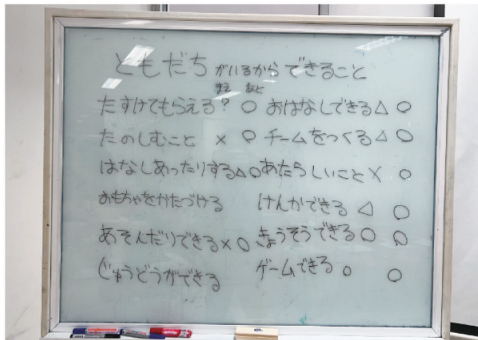 ともだちがいるからできること
まえ あと
たすけてもらえる? ○ おはなしできる△ ○
たのしむこと × ○ チームをつくる△ ○
はなしあったりする△○ あたらしいこと× ○
おもちゃをかたづける けんかができる △ ○
あそんだりできる×○ きょうそうできる○ ○
じゅうどうができる ゲームできる○ ○